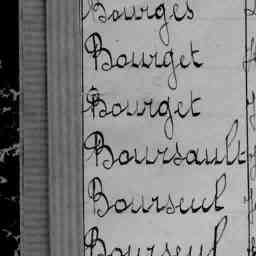 Bourges
Bourget
Bourget
Boursault
Bourseul
Bourseul